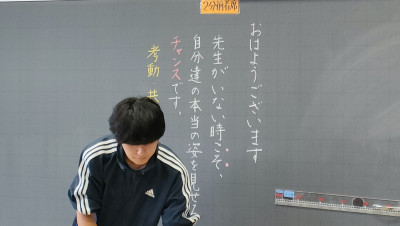 2分前着席
おはようございます
先生がいない時こそ、
自分達の本当の姿を見せる
チャンスです。
考動 共
adidas